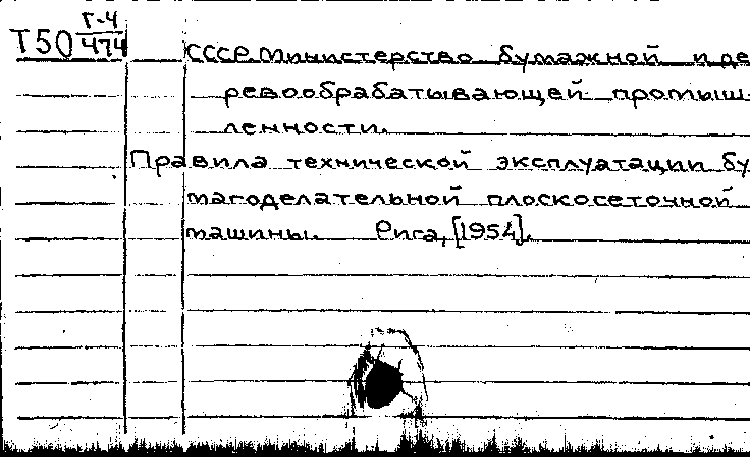 Г-4
Т50 474
СССР. Министерство бумажной и де
ревообрабатывающей промыш-
ленности.
Правила технической эксплуатации бу
магоделательной плоскосеточной
машины. Рига, [1954].